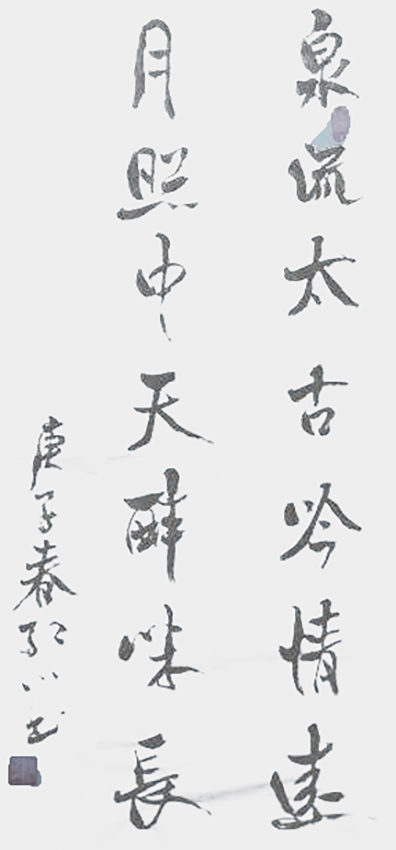 泉流太古吟情遠
月照中天醉味長
庚子春